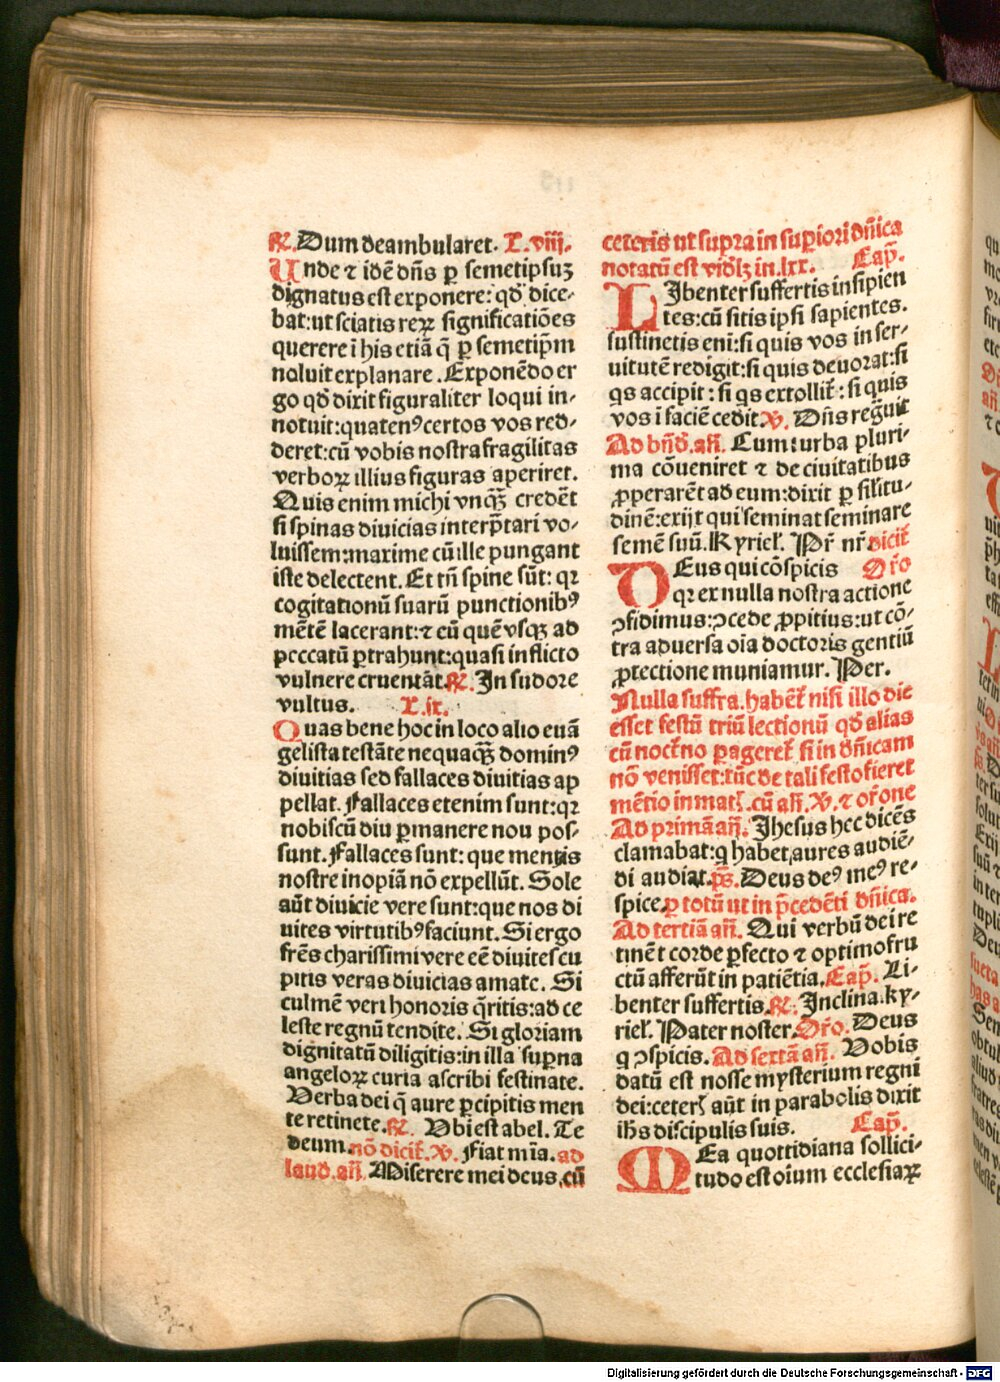 ℟. Dum deambularet. L. viij.
Unde ⁊ idē dn̄s ꝑ semetipsuꝫ
dignatus est exponere: qď dice-
bat: ut sciatis reꝝ significatiōes
querere ī his etiā q̄ ꝑ semetip̄m
noluit explanare. Exponēdo er
go qď dixit figuraliter loqui in-
notuit: quatenꝰ certos vos red-
deret: cū vobis nostra fragilitas
verboꝝ illius figuras aperiret.
Quis enim michi vnq̄ꝫ credēt
si spinas diuicias interp̄tari vo-
luissem: maxime cū ille pungant
iste delectent. Et tn̄ spine sūt: qꝛ
cogitationū suarū punctionibꝰ
mētē lacerant: ⁊ cū quē vsqꝫ ad
peccatū ꝑtrahunt: quasi inflicto
vulnere cruentāt. ℟. In sudore
vultus. L. ix.
Quas bene hoc in loco alio euā
gelista testāte nequaq̄ꝫ dominꝰ
diuitias sed fallaces diuitias ap
pellat. Fallaces etenim sunt: qꝛ
nobiscū diu ꝑmanere nou pos-
sunt. Fallaces sunt: que mentis
nostre inopiā nō expellūt. Sole
aūt diuicie vere sunt: que nos di
uites virtutibꝰ faciunt. Si ergo
frēs charissimi vere eē diuites cu
pitis veras diuicias amate. Si
culmē veri honoris q̄ritis: ad ce
leste regnū tendite. Si gloriam
dignitatū diligitis: in illa suꝑna
angeloꝝ curia ascribi festinate.
Verba dei q̄ aure ꝑcipitis men
te retinete. ℟. Vbi est abel. Te
deum. nō dicit̄. V. Fiat mīa. ad
laud. an̄. Miserere mei deus, cū
ceteris ut supra in suꝑiori dn̄ica
notatū est vidꝫ in .lxx. Cap̄.
LIbenter suffertis insipien
tes: cū sitis ipsi sapientes.
sustinetis eni: si quis vos in ser-
uitutē redigit: si quis deuorat: si
qs accipit: si qs extollit̄: si quis
vos ī faciē cedit. V. Dn̄s regnuit
Ad bn̄d. an̄. Cum turba pluri-
ma cōueniret ⁊ de ciuitatibus
ꝓperarēt ad eum: dixit ꝑ sil̄itu-
dinē: exijt qui seminat seminare
semē suū. Kyriel. Pr̄ nr̄ dicit̄
DEus qui cōspicis Or̄o
qꝛ ex nulla nostra actione
ꝯfidimus: ꝯcede ꝓpitius: ut cō-
tra aduersa oīa doctoris gentiū
ꝓtectione muniamur. Per.
Nulla suffra. habēt̄ nisi illo die
esset festū triū lectionū qď alias
cū noct̄no ꝑageret̄ si in dn̄icam
nō venisset: tūc de tali festo fieret
mētio in mat̄. cū an̄. V. ⁊ or̄one
Ad primā an̄. Jhesus hec dicēs
clamabat: q habet aures audiē-
di audiat. ps̄. Deus deꝰ meꝰ re-
spice. ꝑ totū ut in p̄cedēti dn̄ica.
Ad tertiā an̄. Qui verbū dei re
tinēt corde ꝑfecto ⁊ optimo fru
ctū afferūt in patiētia. Cap̄. Li-
benter suffertis. ℟. Inclina. ky-
riel. Pater noster. Or̄o. Deus
q ꝯspicis. Ad sextā an̄. Vobis
datū est nosse mysterium regni
dei: ceteri aūt in parabolis dixit
ih̄s discipulis suis. Cap̄.
MEa quottidiana sollici-
tudo est oīum ecclesiaꝝ
Digitalisierung gefördert durch die Deutsche Forschungsgemeinschaft - DFG